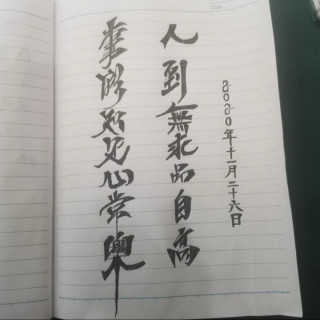 2020年十一月二十六日
人到無求品自高
事能知足心常樂